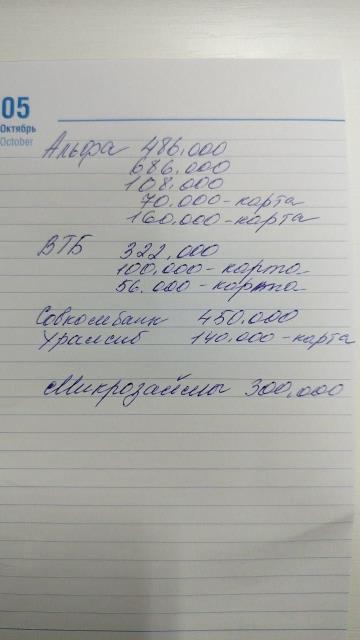 05
Октябрь
October
Альфа 486.000
686.000
108.000
70.000-карта
160.000-карта
ВТБ 322.000
100.000-карта
56.000-карта
Совкомбанк 450.000
Уралсиб 140.000-карта
Микрозаймы 300.000